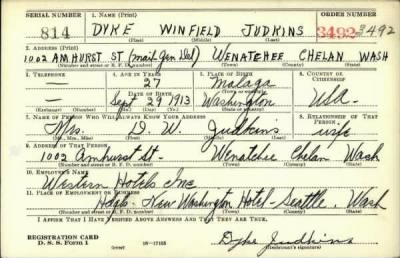 SERIAL NUMBER 1. NAME (Print) ORDER NUMBER
814 DYKE WINFIELD JUDKINS 3492 3492
(First) (Middle) (Last)
2. ADDRESS (Print)
1002 AMHURST ST (mail Gen Del) WENATCHEE CHELAN WASH
(Number and street or R. F. D. number) (Town) (County) (State)
3. TELEPHONE 4. AGE IN YEARS 5. PLACE OF BIRTH 6. COUNTRY OF CITIZENSHIP
— 27 Malaga
DATE OF BIRTH (Town or county)
— Sept 29 1913 Washington USA.
(Exchange) (Number) (Mo.) (Day) (Yr.) (State or country)
7. NAME OF PERSON WHO WILL ALWAYS KNOW YOUR ADDRESS 8. RELATIONSHIP OF THAT PERSON
Mrs. D. W. Judkins wife
(Mr., Mrs., Miss) (First) (Middle) (Last)
9. ADDRESS OF THAT PERSON
1002 Amhurst St - Wenatchee Chelan Wash
(Number and street or R. F. D. number) (Town) (County) (State)
10. EMPLOYER'S NAME
Western Hotels Inc
11. PLACE OF EMPLOYMENT OR BUSINESS
Hdqts - New Washington Hotel - Seattle, Wash
(Number and street or R. F. D. number) (Town) (County) (State)
I AFFIRM THAT I HAVE VERIFIED ABOVE ANSWERS AND THAT THEY ARE TRUE.
REGISTRATION CARD
D. S. S. Form 1 (over) 16—17105 Dyke Judkins
(Registrant's signature)